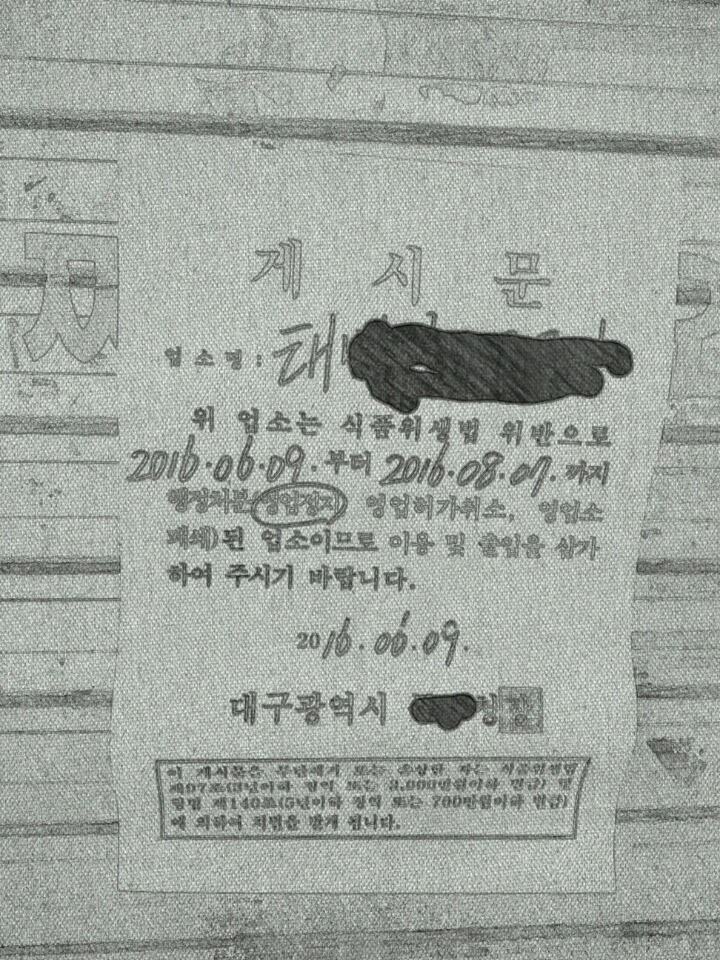 게 시 문
업 소 명 : 태
위 업소는 식품위생법 위반으로
2016.06.09. 부터 2016.08.07. 까지
행정처분(영업정지 영업허가취소, 영업소
폐쇄)된 업소이므로 이용 및 출입을 삼가
하여 주시기 바랍니다.
2016.06.09.
대구광역시 청장
이 게시문을 무단제거 또는 손상한 자는 식품위생법
제97조(3년이하 징역 또는 3,000만원이하 벌금) 및
형법 제140조(5년이하 징역 또는 700만원이하 벌금)
에 의하여 처벌을 받게 됩니다.